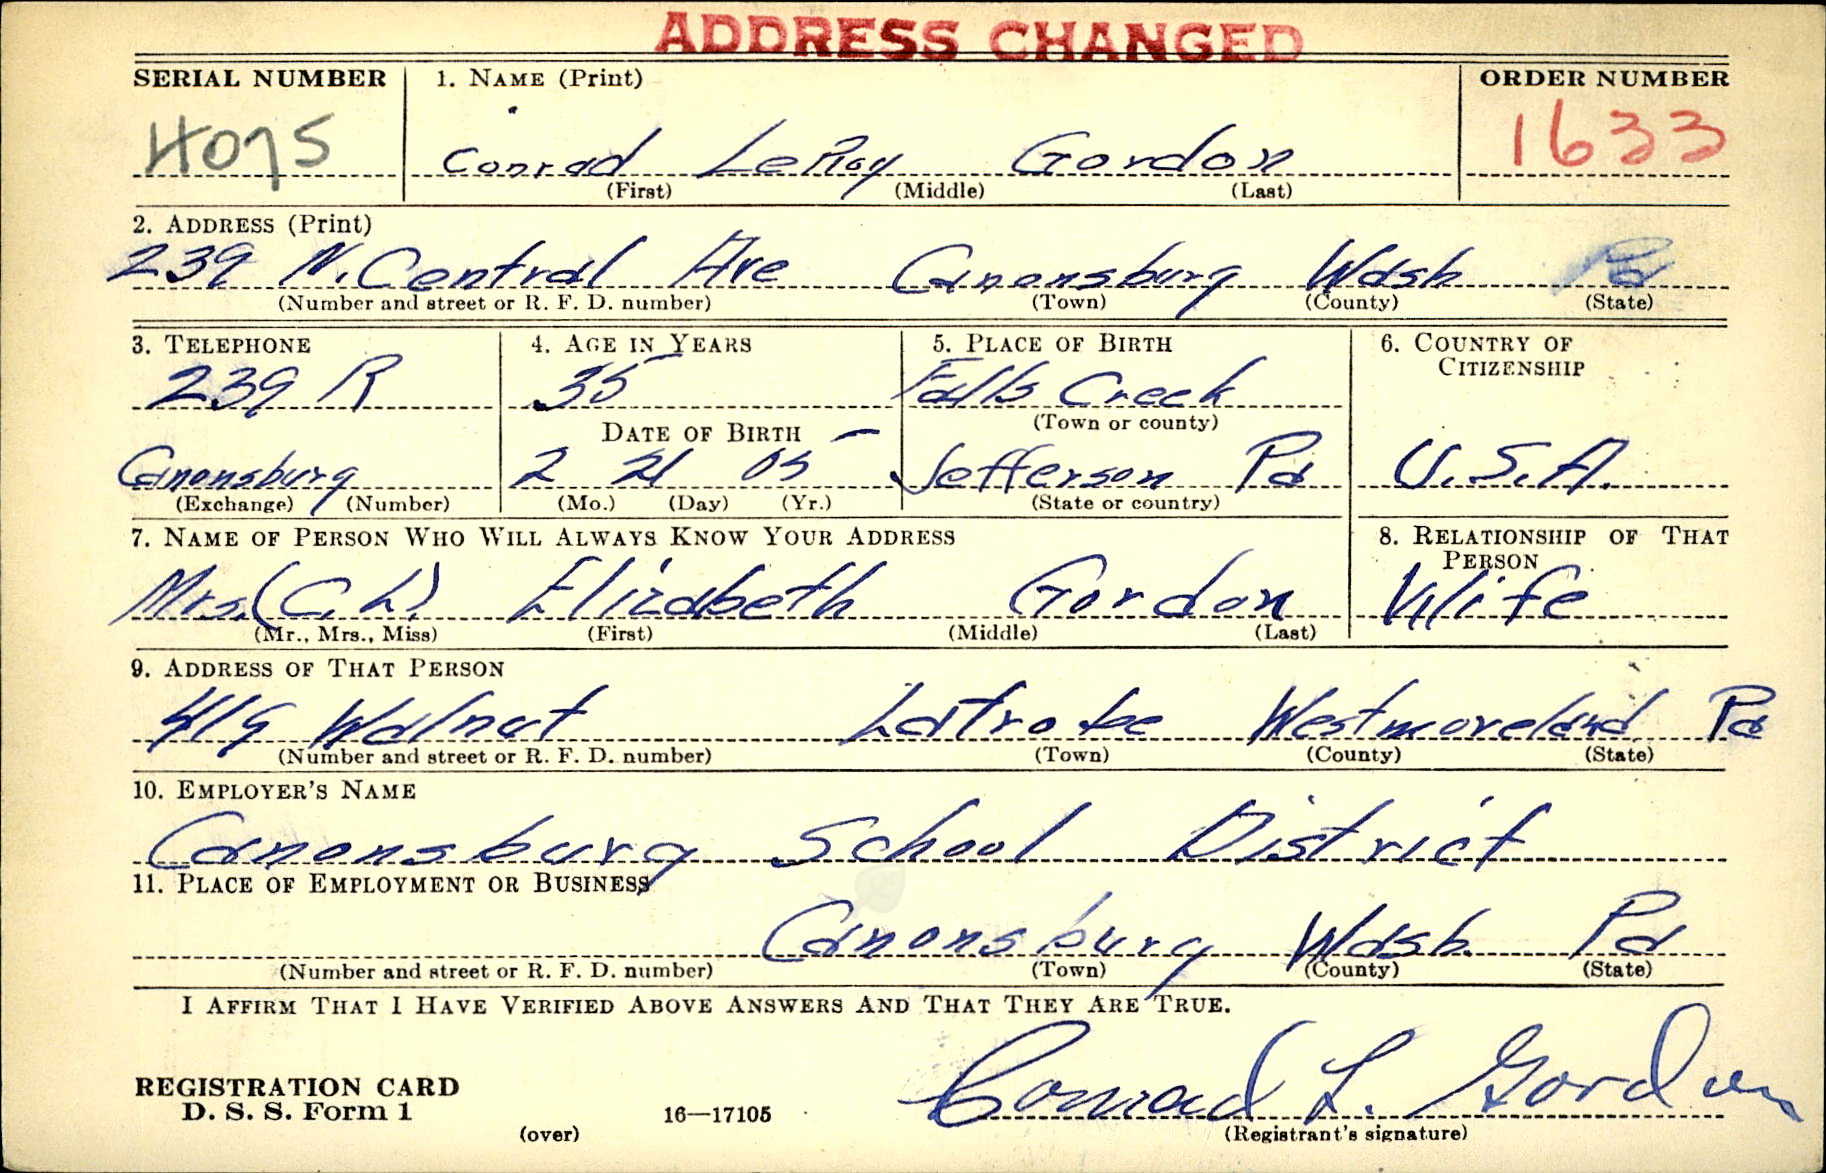 ADDRESS CHANGED
SERIAL NUMBER 1. NAME (Print) ORDER NUMBER
4075 Conrad LeRoy Gordon 1633
(First) (Middle) (Last)
2. ADDRESS (Print)
239 N. Central Ave Canonsburg Wash Pa
(Number and street or R. F. D. number) (Town) (County) (State)
3. TELEPHONE 4. AGE IN YEARS 5. PLACE OF BIRTH 6. COUNTRY OF
CITIZENSHIP
239 R 35 Falls Creek
(Town or county)
DATE OF BIRTH
Canonsburg 2 21 05 Jefferson Pa U.S.A.
(Exchange) (Number) (Mo.) (Day) (Yr.) (State or country)
7. NAME OF PERSON WHO WILL ALWAYS KNOW YOUR ADDRESS 8. RELATIONSHIP OF THAT
PERSON
Mrs. (C. L.) Elizabeth Gordon Wife
(Mr., Mrs., Miss) (First) (Middle) (Last)
9. ADDRESS OF THAT PERSON
419 Walnut Latrobe Westmoreland Pa
(Number and street or R. F. D. number) (Town) (County) (State)
10. EMPLOYER'S NAME
Canonsburg School District
11. PLACE OF EMPLOYMENT OR BUSINESS
Canonsburg Wash. Pa
(Number and street or R. F. D. number) (Town) (County) (State)
I AFFIRM THAT I HAVE VERIFIED ABOVE ANSWERS AND THAT THEY ARE TRUE.
Conrad L. Gordon
REGISTRATION CARD
D. S. S. Form 1 16—17105
(over) (Registrant's signature)